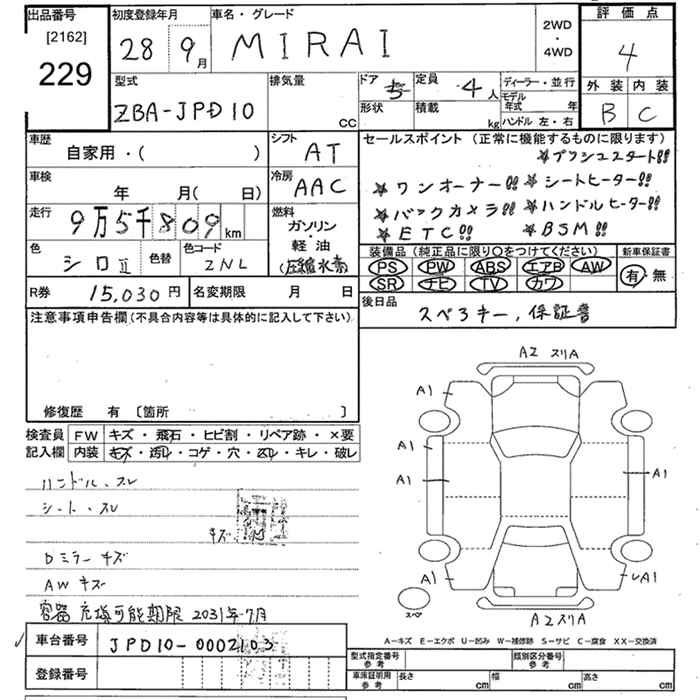 出品番号 初度登録年月 車名・グレード 2WD・4WD 評価点
[2162]
229
28 9月 MIRAI 4
型式 排気量 ドア 5 定員 4人 ディーラー・並行 外装 内装
ZBA-JPD10 cc 形状 積載 kg モデル年式 年 B C
ハンドル 左・右
車歴 シフト セールスポイント (正常に機能するものに限ります)
自家用・( ) AT ★プッシュスタート!!
車検 冷房 ★ワンオーナー!! ★シートヒーター!!
年 月( 日) AAC ★バックカメラ!! ★ハンドルヒーター!!
走行 燃料 ★ETC!! ★BSM!!
9万5千809km ガソリン・軽油
(圧縮水素)
色 色替 色コード 装備品 (純正品に限り○をつけてください) 新車保証書
シロII ZNL PS PW ABS エアB AW 有・無
SR ナビ TV カワ
R券 15,030円 名変期限 月 日 後日品
スペアキー, 保証書
注意事項申告欄(不具合内容等は具体的に記入して下さい)
修復歴 有 〔箇所 〕
検査員 FW キズ・飛石・ヒビ割・リペア跡・×要
記入欄 内装 キズ・汚レ・コゲ・穴・スレ・キレ・破レ
ハンドル・スレ
シート・スレ
キズ
Dミラーキズ
AWキズ
容器充填可能期限 2031年7月
A2 スリA
A1 A1
A1
A1 A1
A1 A1
スペア
A2スリA
A-キズ E-エクボ U-凹み W-補修跡 S-サビ C-腐食 XX-交換済
車台番号 JPD10-0002103
型式指定番号 参考 類別区分番号 参考
登録番号
車庫証明用 参考 長さ cm 幅 cm 高さ cm